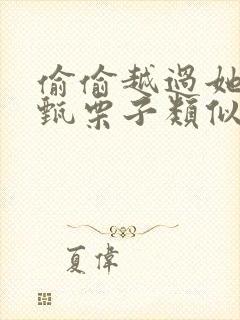 偷偷越過她
甄栗子類似
夏偉